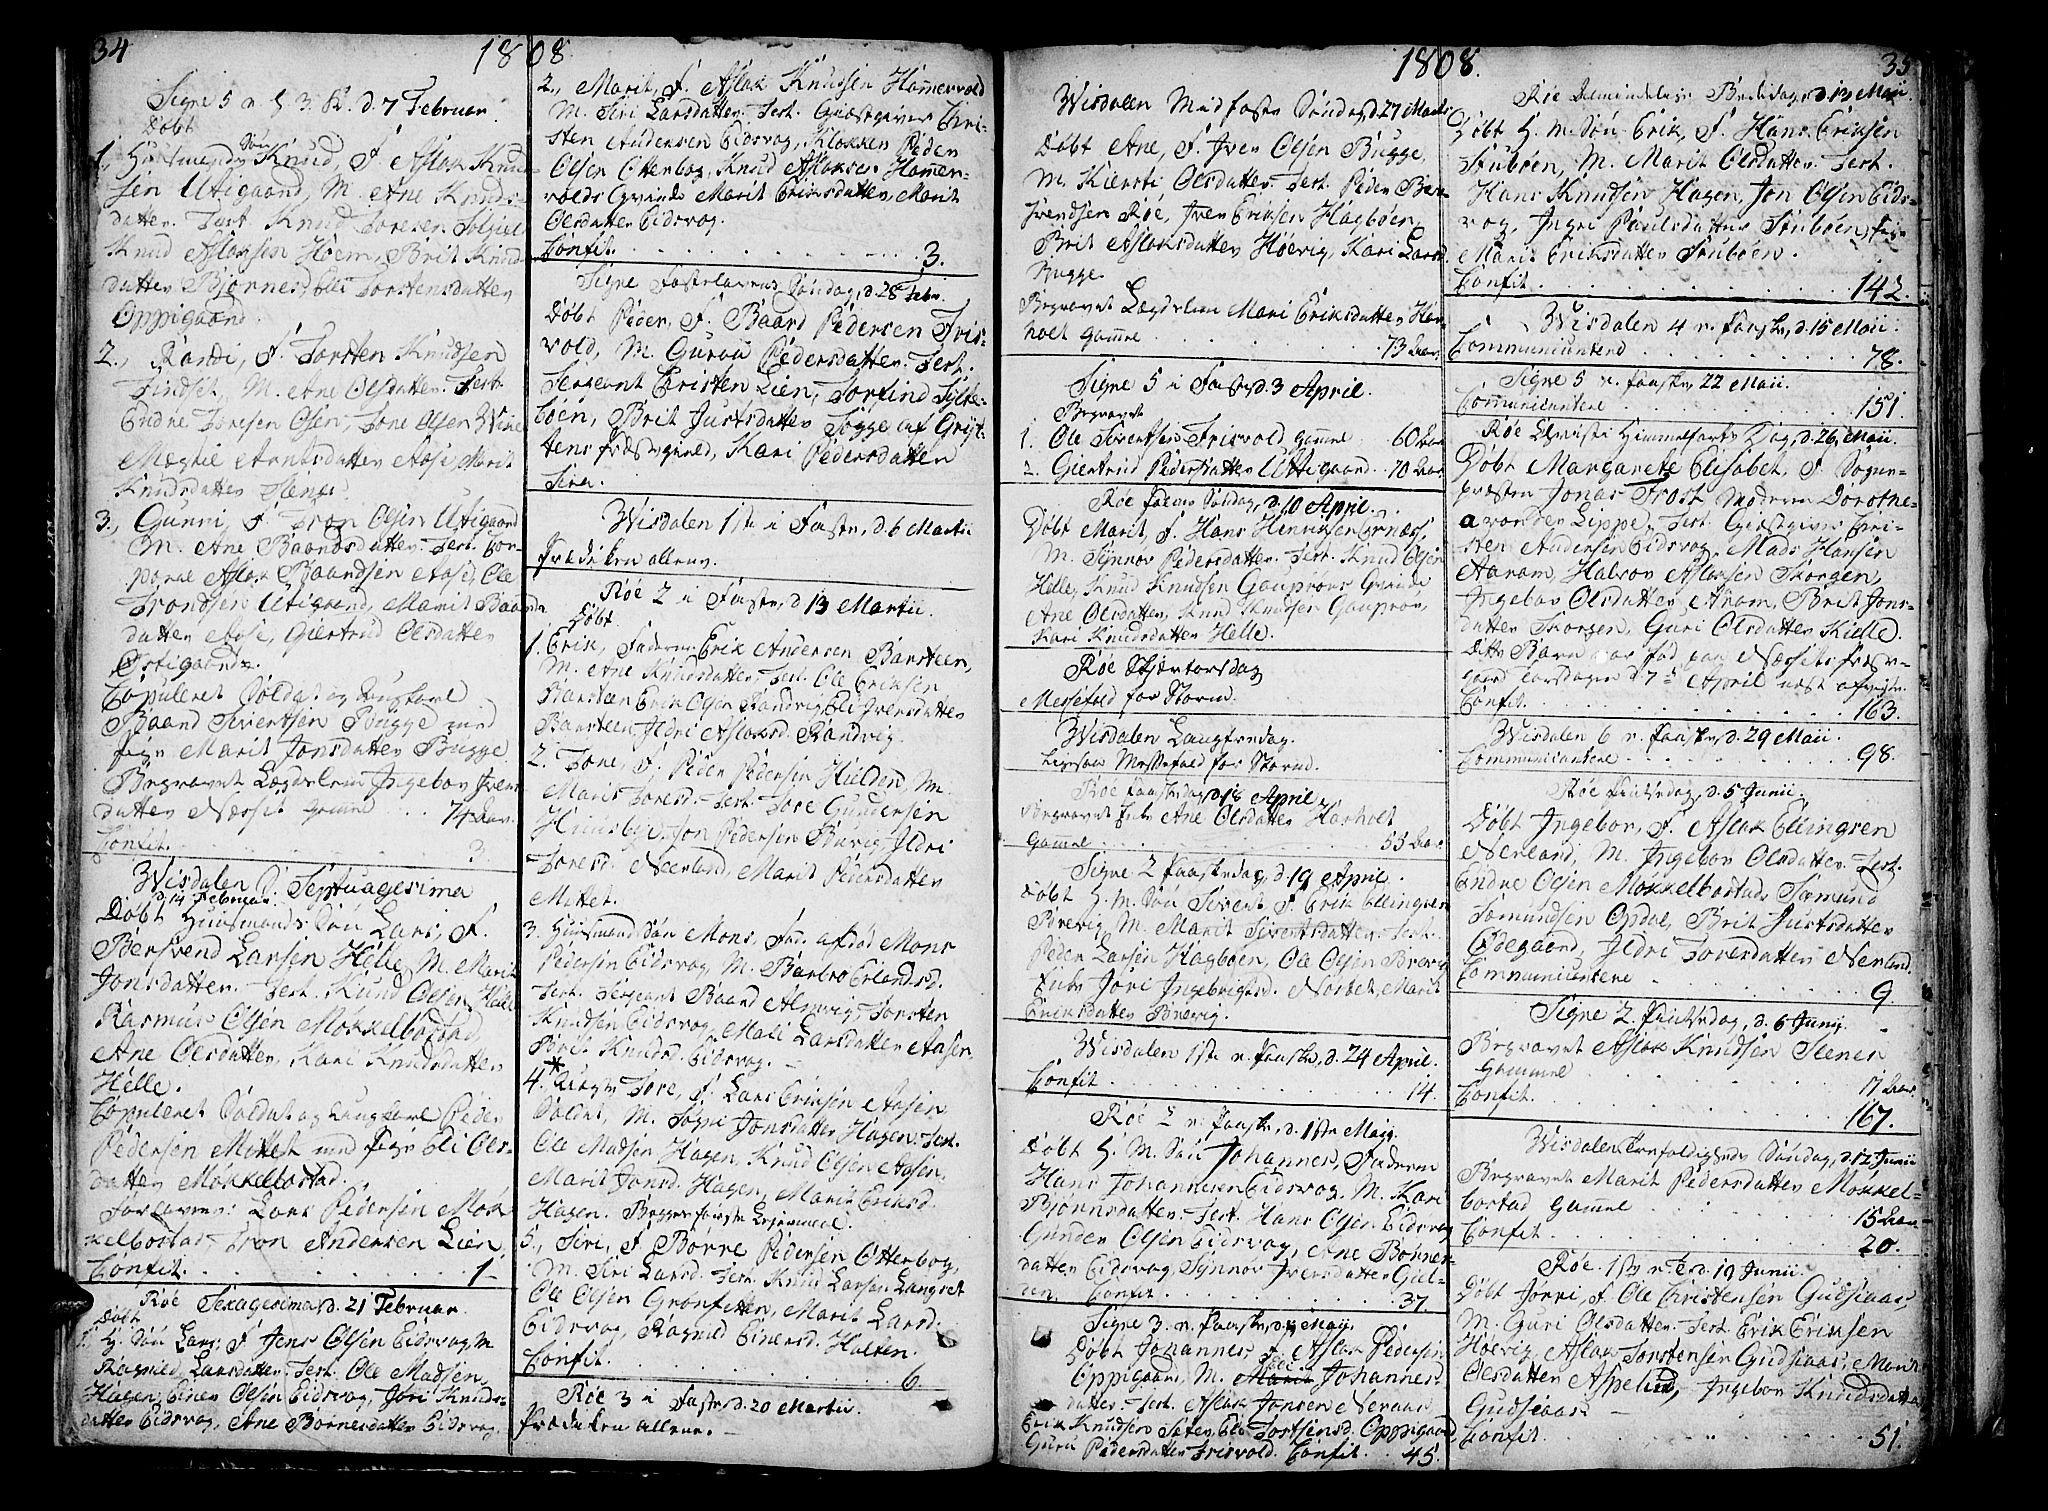 34
1808
Signe 5 n. H. 3. K. d. 7 Februar
Døbt
1., Huusmands Søn Knud, F. Aslak Knud-
sen Utigaard, M. Ane Knuds-
datter. Test. Knud Toresen
Knud Aslaksen Hoem, Brit Knuds-
datter Bjørnes, Eli Torstensdatter
Oppigaard.
2., Randi, F. Torsten Knudsen
Tindset, M. Ane Olsdatter. Test.
Endre Toresen, Tore Olsen
Magtil Arntsdatter Aasi, Marit
Knudsdatter
3., Gunni, F. Tron Olsen Utigaard
M. Ane Baardsdatter. Test. Cor-
poral Aslak Baardsen Aasi, Ole
Trondsen Utigaard, Marit Baards
datter Aase, Giertrud Olsdatter
Copuleret Soldat og Ungkarl
Baard Sivertsen Bugge med
Pige Marit Jonsdatter Bugge
Begravet Lægdslem Ingebor Ivers
datter Næsset gammel . . 74 Aar.
Confit. . . . 3.
Wisdalen S. Septuagesima
d. 14 Februar
Døbt Huusmands Søn Lars, F.
Bersvend Larsen Helle, M. Marit
Jonsdatter. Test. Knud Olsen Helle
Rasmus Olsen Møkkelbostad
Ane Olsdatter, Kari Knudsdatter
Helle.
Copuleret Soldat og Ungkarl Peder
Pedersen Mittet med Pige Eli Ols-
datter Møkkelbostad.
Forlovere: Lars Pedersen Møk
kelbostad, Tron Andersen Lien,
Confit. . . . 1
Røe Sexagesima d. 21 Februar.
Døbt
1. H. Søn Lars, F. Jens Olsen Eidsvog, M
Ragnild Larsdatter. Test. Ole Madsen
Hagen, Einer Olsen Eidsvog, Jori Knuds-
datter Eidsvog, Ane Bornersdatter Eidsvog.
2., Marit, F. Aslak Knudsen Hammervold
M. Siri Larsdatter. Test. Giæstgiver Chri-
sten Andersen Eidsvog, Klokker Peder
Olsen Otterbog, Knud Aslaksen Hammer-
volds Qvinde Marit Eriksdatter, Marit
Olsdatter Eidsvog.
Confit. . . . 3.
Signe Fastelavens Søndag, d. 28 Febr.
Døbt Peder, F. Baard Pedersen Tris-
vold, M. Guroii Pedersdatter. Test.
Sergeant Christen Lien, Torfind Sylte-
bøen, Brit Justsdatter Sogge af Gryt-
tens Præstegield, Kari Pedersdatter
Sira.
Wisdalen 1ste i Faste, d. 6 Martii
Prædiken allene.
Røe 2 i Faste, d. 13 Martii.
Døbt.
1. Erik, Faderen Erik Andersen Barsteen,
M. Ane Knudsdatter. Test. Ole Eriksen
Barsteen Erik Olsen Randvig, Eli Iversdatter
Barsteen, Ildri Aslaksd. Randvig.
2. Tore, F. Peder Pedersen Hielden, M.
Marit Toresd. Test. Tore Gundersen
Huusbye, Jon Pedersen Buvig, Ildri
Toresd. Neerland, Marit Pedersdatter
Mittet.
3. Huusmand Søn Mons, Fad. afdød Mons
Pedersen Eidsvog, M. Barbro Erlandsd.
Test. Sergeant Baard Alnvig, Torsten
Knudsen Eidsvog, Mali Larsdatter Aasen
Brit Knudsd. Eidsvog.
*
4. Uægte Tore, F. Lars Eriksen Aasen
Soldat, M. Sigri Jonsdatter Hagen. Test.
Ole Madsen Hagen, Knud Olsen Aasen,
Marit Jonsd. Hagen, Marit Eriksd.
Hagen. Begges første Lejermaal.
5., Siri, F. Børre Pedersen Otterbog,
M. Siri Larsd. Test. Knud Larsen Langset
Ole Olsen Grønfitten, Marit Larsd.
Eidsvog, Ragnild Einersd. Holten.
Confit. . . . 6.
Røe 3 i Faste, d. 20 Martii.
Prædiken allene.
1808.
35
Wisdalen Midfaste Søndag, d. 27 Martii
Døbt Ane, F. Iver Olsen Bugge,
M. Kiersti Olsdatter. Test. Peder Ber-
svendsen Røe, Iver Eriksen Hagbøen,
Brit Aslaksdatter Høevig, Kari Larsd.
Bugge.
Begravet Lægdslem Mari Eriksdatter Har-
holt gammel . . . 73 Aar.
Signe 5 i Faste, d. 3 April.
Begravet
1. Ole Sivertsen Trisvold gammel 60 Aar
2. Giertrud Pedersdatter Uttigaard . 70 Aar.
Røe Palme Søndag, d. 10 April.
Døbt Marit, F. Hans Henriksen Ørnæs,
M. Synnov Pedersdatter. Test. Knud Olsen
Helle, Knud Knudsen Gouprørs Qvinde,
Ane Olsdatter, Knud Knudsen Gouprør,
Kari Knudsdatter Helle.
Røe Skjertorsdag
Messefald for Storm.
Wisdalen Langfredag.
Ligesaa Messefald for Storm.
Røe Paaskedag, d. 18 April.
Begravet Enke Ane Olsdatter Harholt
gammel . . . 53 Aar.
Signe 2 Paaskedag, d. 19 April.
Døbt H. M. Søn Sivert F. Erik Ellingsen
Brevig, M. Marit Sivertsdatter. Test.
Peder Larsen Hagbøen, Ole Olsen Brevig
Enke Jori Ingebrigtsd. Norset, Marit
Eriksdatter Brevig.
Wisdalen 1ste n. Paaske, d. 24 April.
Confit. . . . 14.
Røe 2 n. Paaske, d. 1ste Maij.
Døbt H. M. Søn Johannes, Faderen
Hans Johannesen Eidsvog, M. Kari
Bjørnsdatter. Test. Hans Olsen Eidsvog
Gunder Olsen Eidsvog, Ane Bønner-
datter Eidsvog, Synnov Iversdatter Giel-
len. Confit. . . . 37.
Signe 3. n. Paaske, d. 8 Maii.
Døbt Johannes, F. Aslak Pedersen
Oppigaard, M. Johannes
datter. Test. Aslak Jonsen Neraas
Erik Knudsen Sæter, Eli Torstensd. Oppigaard,
Guru Pedersdatter Trisvold. Confit . . 45.
Røe Almindelige Bededag, d. 13 Maii.
Døbt H. M. Søn Erik, F. Hans Eriksen
Stubøen, M. Marit Olsdatter. Test.
Hans Knudsen Hagen, Jon Olsen Eids-
vog, Ingri Paulsdatter Stubøen, Pige
Marit Eriksdatter Stubøen.
Confit . . . 142.
Wisdalen 4 n. Paaske, d. 15 Maii.
Communicantere . . . 78.
Signe 5 n. Paaske 22 Maii.
Communicantere . . . 151.
Røe Christi Himmelfarts Dag, d. 26 Maii.
Døbt Margarete Elisabet, F. Sogne-
præsten Jonas Frost, Moderen Dorothe-
a von der Lippe, Test. Giæstgiver Chri-
sten Andersen Eidsvog, Mads Hansen
Aaram, Halvor Aslaksen Skorgen,
Ingebor Olsdatter Aram, Brit Jons-
datter Skorgen, Guri Olsdatter Kielle.
Dette Barn var fød paa Næssets Præste-
gaard Torsdagen d. 7de April næst afvigte.
Confit. . . . 163.
Wisdalen 6 n. Paaske, d. 29 Maii.
Communicantere . . . 98.
Røe Pintsedag, d. 5 Junii.
Døbt Ingebor, F. Aslak Ellingsen
Nerland, M. Ingebor Olsdatter. Test.
Endre Olsen Møkkelbostad, Sæmund
Sæmundsen Opdøl, Brit Justsdatter
Ødegaard, Ildri Toresdatter Nerland.
Communicantere . . . 9.
Signe 2 Pintsedag, d. 6 Junij.
Begravet Aslak Knudsen Stenen
gammel . . . 17 Aar
Confit. . . . 167.
Wisdalen Trefoldigheds Søndag, d. 12 Junii
Begravet Marit Pedersdatter Møkkel-
bostad gammel . . . 15 Aar
Confit . . . 20.
Røe 1ste n. T. d. 19 Junii.
Døbt Jorri, F. Ole Christensen Gudsiaas,
M. Guri Olsdatter. Test. Erik Eriksen
Høevig, Aslak Torstensen Gudsiaas, Marit
Olsdatter Aspelund, Ingebor Knudsdatter
Gudsiaas.
Confit. . . . 51.